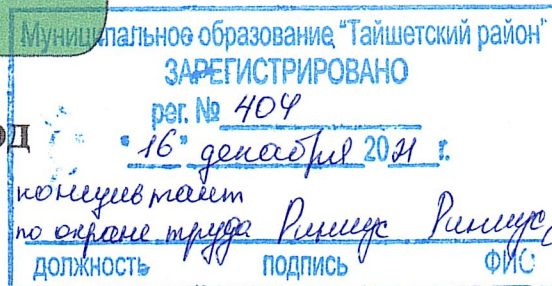 Муниципальное образование "Тайшетский район"
ЗАРЕГИСТРИРОВАНО
рег. № 404
"16" декабря 2021 г.
консультант
по охране труда
должность подпись ФИО